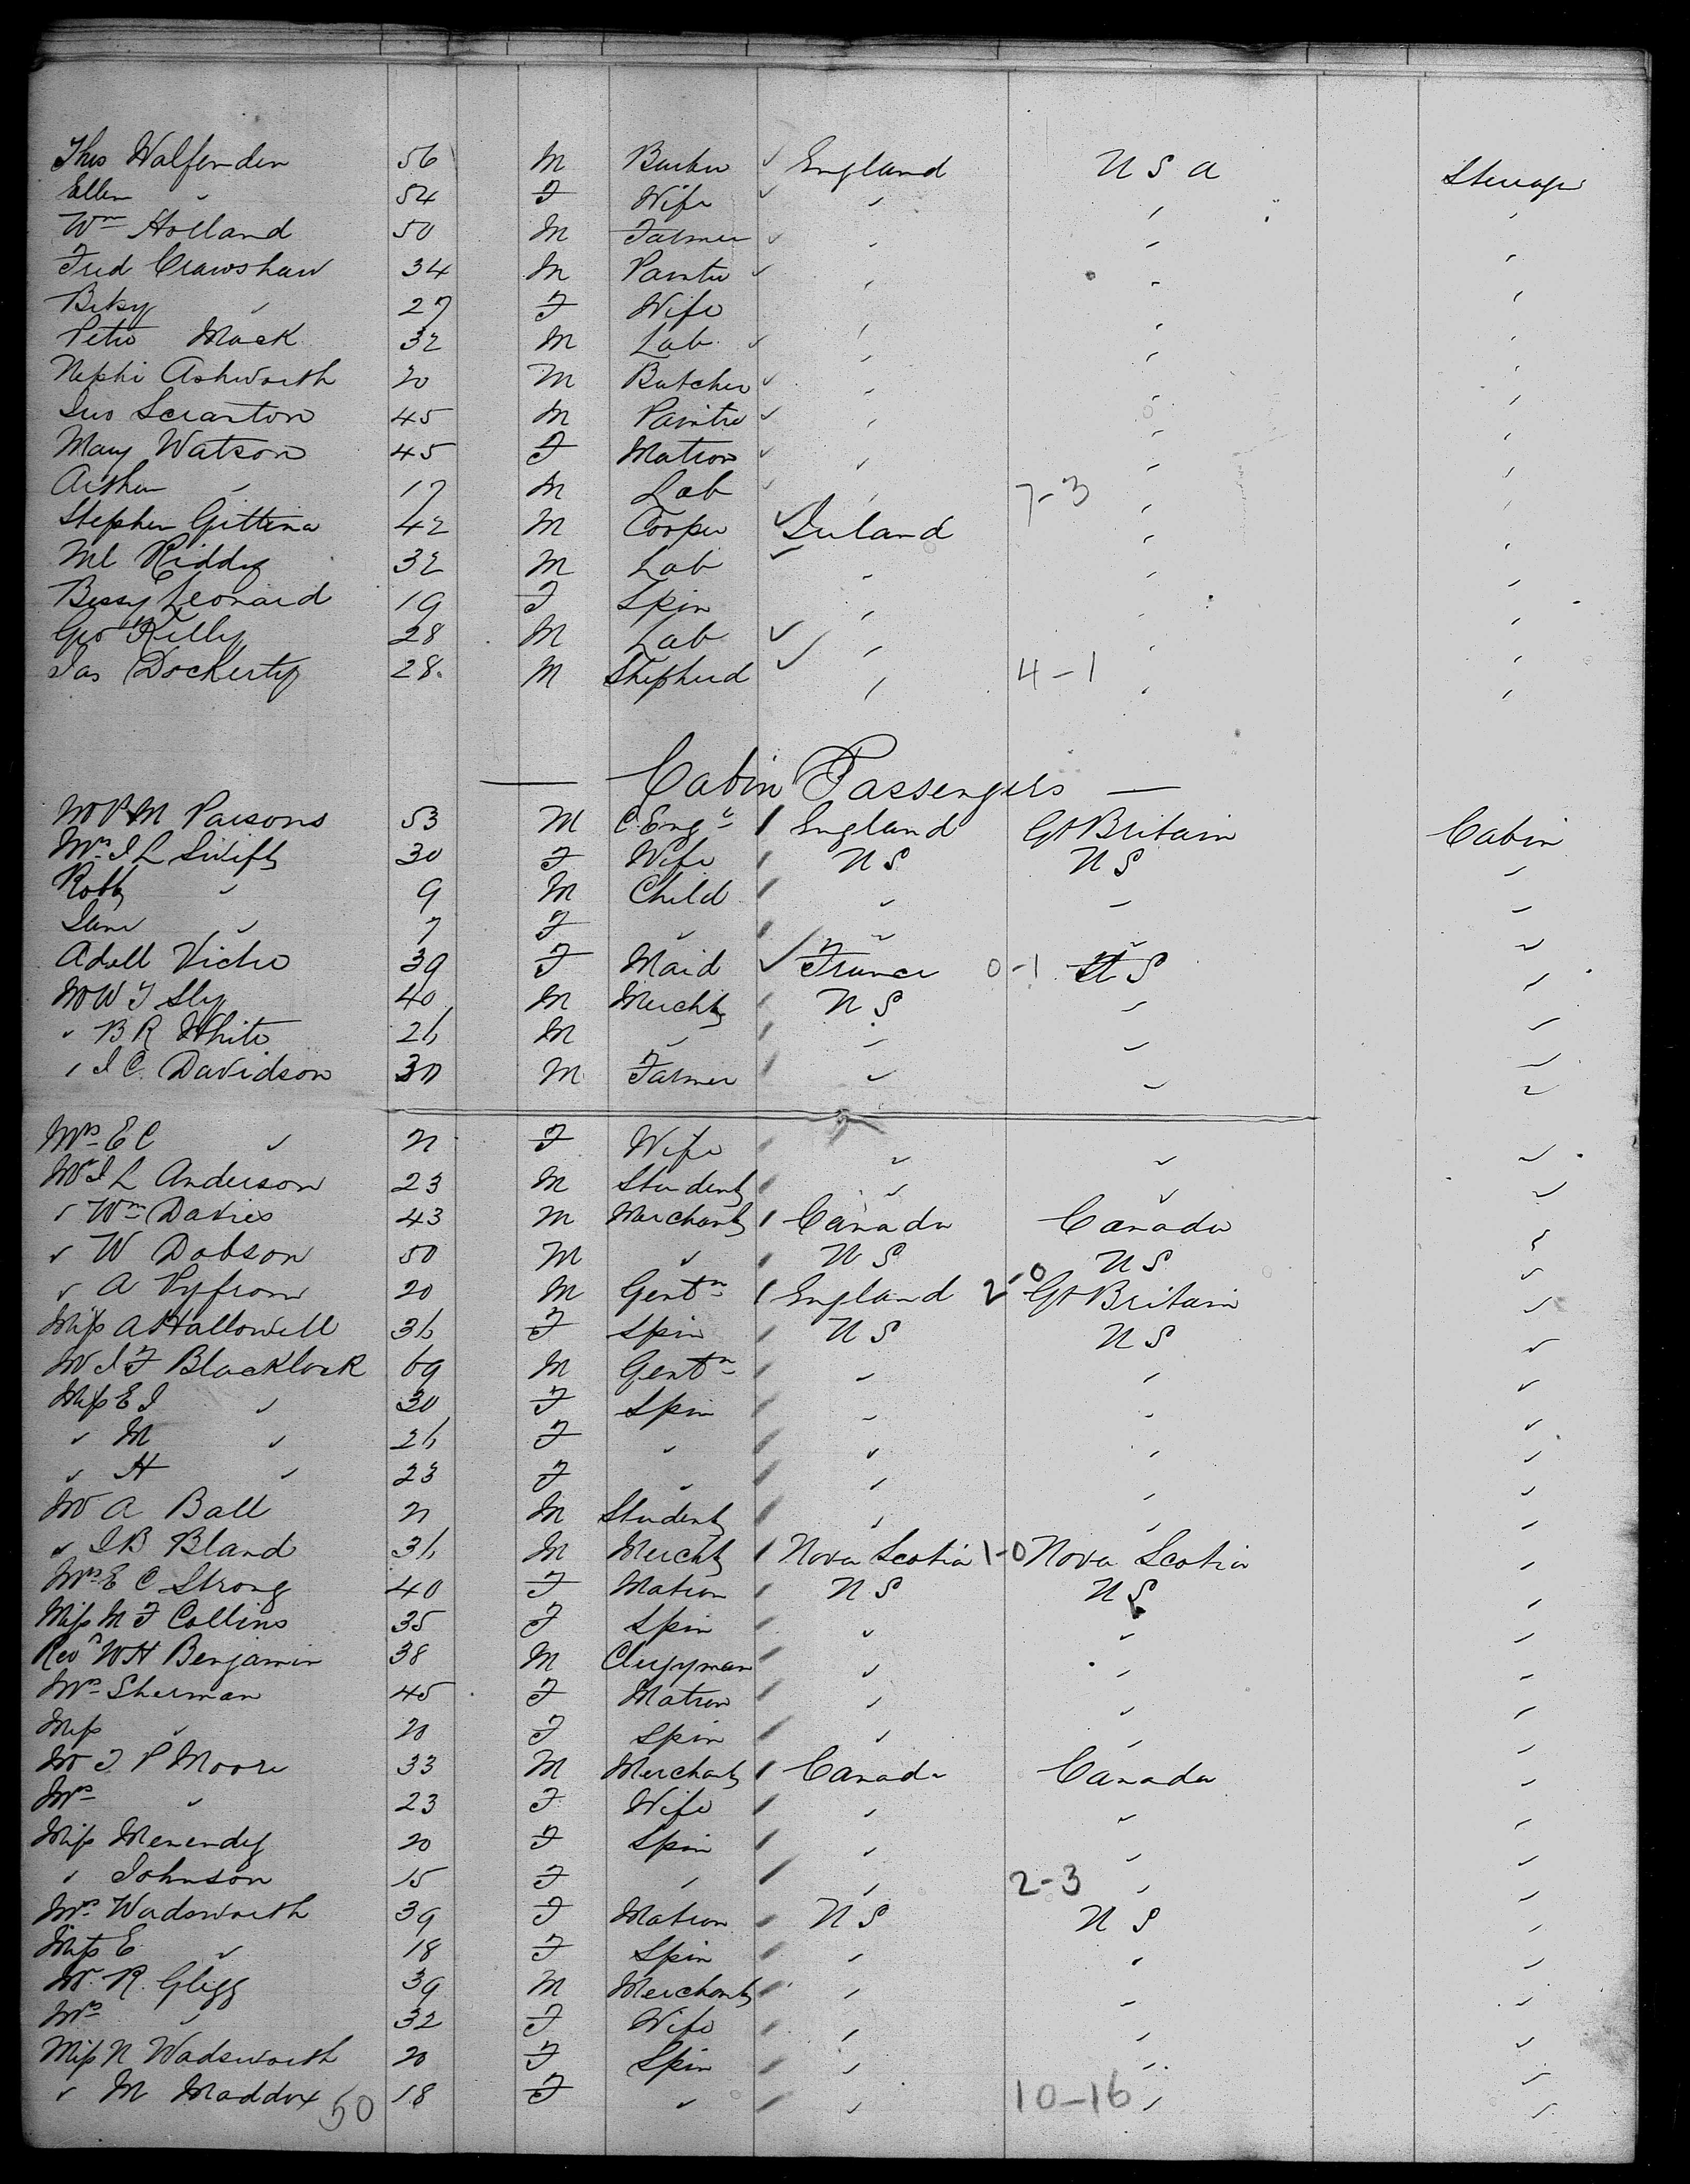 Thos Walfenden 56 M Barber ✓ England U S A Steerage
Ellen " 54 F Wife ✓ " " "
Wm Holland 50 M Farmer ✓ " " "
Fred Crawshaw 34 M Painter ✓ " " "
Betsy " 27 F Wife " " "
Peter Mack 32 M Lab. ✓ " " "
Nephi Ashworth 20 M Butcher ✓ " " "
Jno Scranton 45 M Painter ✓ " " "
Mary Watson 45 F Matron ✓ " " "
Arthur " 17 M Lab ✓ " 7-3 " "
Stephen Gittina 42 M Cooper ✓ Ireland " "
Ml Riddy 32 M Lab ✓ " " "
Bessy Leonard 19 F Spin " " "
Geo Kelly 28 M Lab ✓ " " "
Jas Dockerty 28. M Shepherd ✓ " 4-1 " "
— Cabin Passengers —
Mr P M Parsons 53 M C. Engr England Gt Britain Cabin
Mrs J L Swift 30 F Wife U S U S "
Robt " 9 M Child " " "
Jane " 7 F " " " "
Adell Victre 39 F Maid ✓ France 0-1 U S "
Mr W J Sly 40 M Mercht U S " "
" B R White 26 M " " " "
" J C. Davidson 30 M Farmer " " "
Mrs E C " 21 F Wife " " "
Mr J L Anderson 23 M Student " " "
" Wm Davies 43 M Merchant Canada Canada "
" W Dobson 50 M " U S U S "
" A Pyfrom 20 M Gentn England 2-0 Gt Britain "
Miss A Hallowell 36 F Spin U S U S "
Mr J F Blacklock 69 M Gentn " " "
Miss E J " 30 F Spin " " "
" M " 26 F " " " "
" H " 23 F " " " "
Mr A Ball 21 M Student " " "
" J B Bland 36 M Mercht Nova Scotia 1-0 Nova Scotia "
Mrs E C Strong 40 F Matron U S U S "
Miss M F Collins 35 F Spin " " "
Revd W H Benjamin 38 M Clergyman " " "
Mrs Sherman 45 F Matron " " "
Miss " 20 F Spin " " "
Mr J P Moore 33 M Merchant Canada Canada "
Mrs " 23 F Wife " " "
Miss Menendy 20 F Spin " " "
" Johnson 15 F " " 2-3 " "
Mrs Wadsworth 39 F Matron U S U S "
Miss E " 18 F Spin " " "
Mr. R. Gligg 39 M Merchant " " "
Mrs " 32 F Wife " " "
Miss N Wadsworth 20 F Spin " " "
" M Maddox 50 18 F " " 10-16 " "